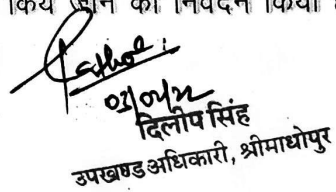 किये जाने का निवेदन किया
दिलीप सिंह
उपखण्ड अधिकारी, श्रीमाधोपुर